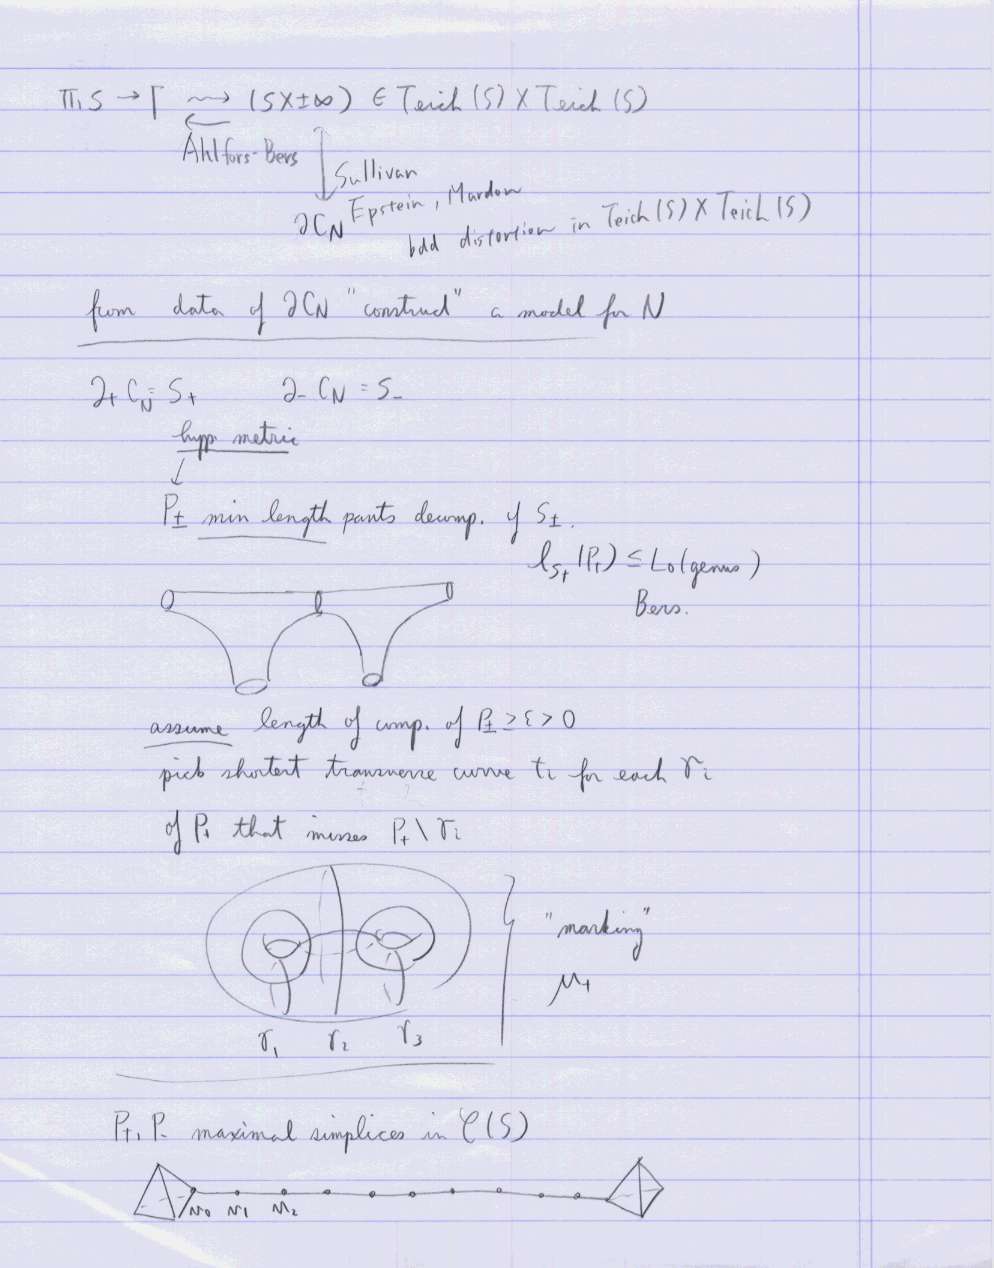 π₁S → Γ ⇝ (S×±∞) ∈ Teich(S) × Teich(S)
Ahlfors-Bers
Sullivan
Epstein, Marden
∂C_N
bdd distortion in Teich(S) × Teich(S)
from data of ∂C_N "construct" a model for N
∂₊C_N = S₊ ∂₋C_N = S₋
hyp. metric
↓
P± min length pants decomp. of S±.
l_S₊(P₊) ≤ L₀(genus)
Bers.
assume length of comp. of P± ≥ ε > 0
pick shortest transverse curve tᵢ for each γᵢ
of P₊ that misses P₊ \ γᵢ
"marking"
μ₊
γ₁ γ₂ γ₃
P₊, P₋ maximal simplices in C(S)
N₀ N₁ N₂